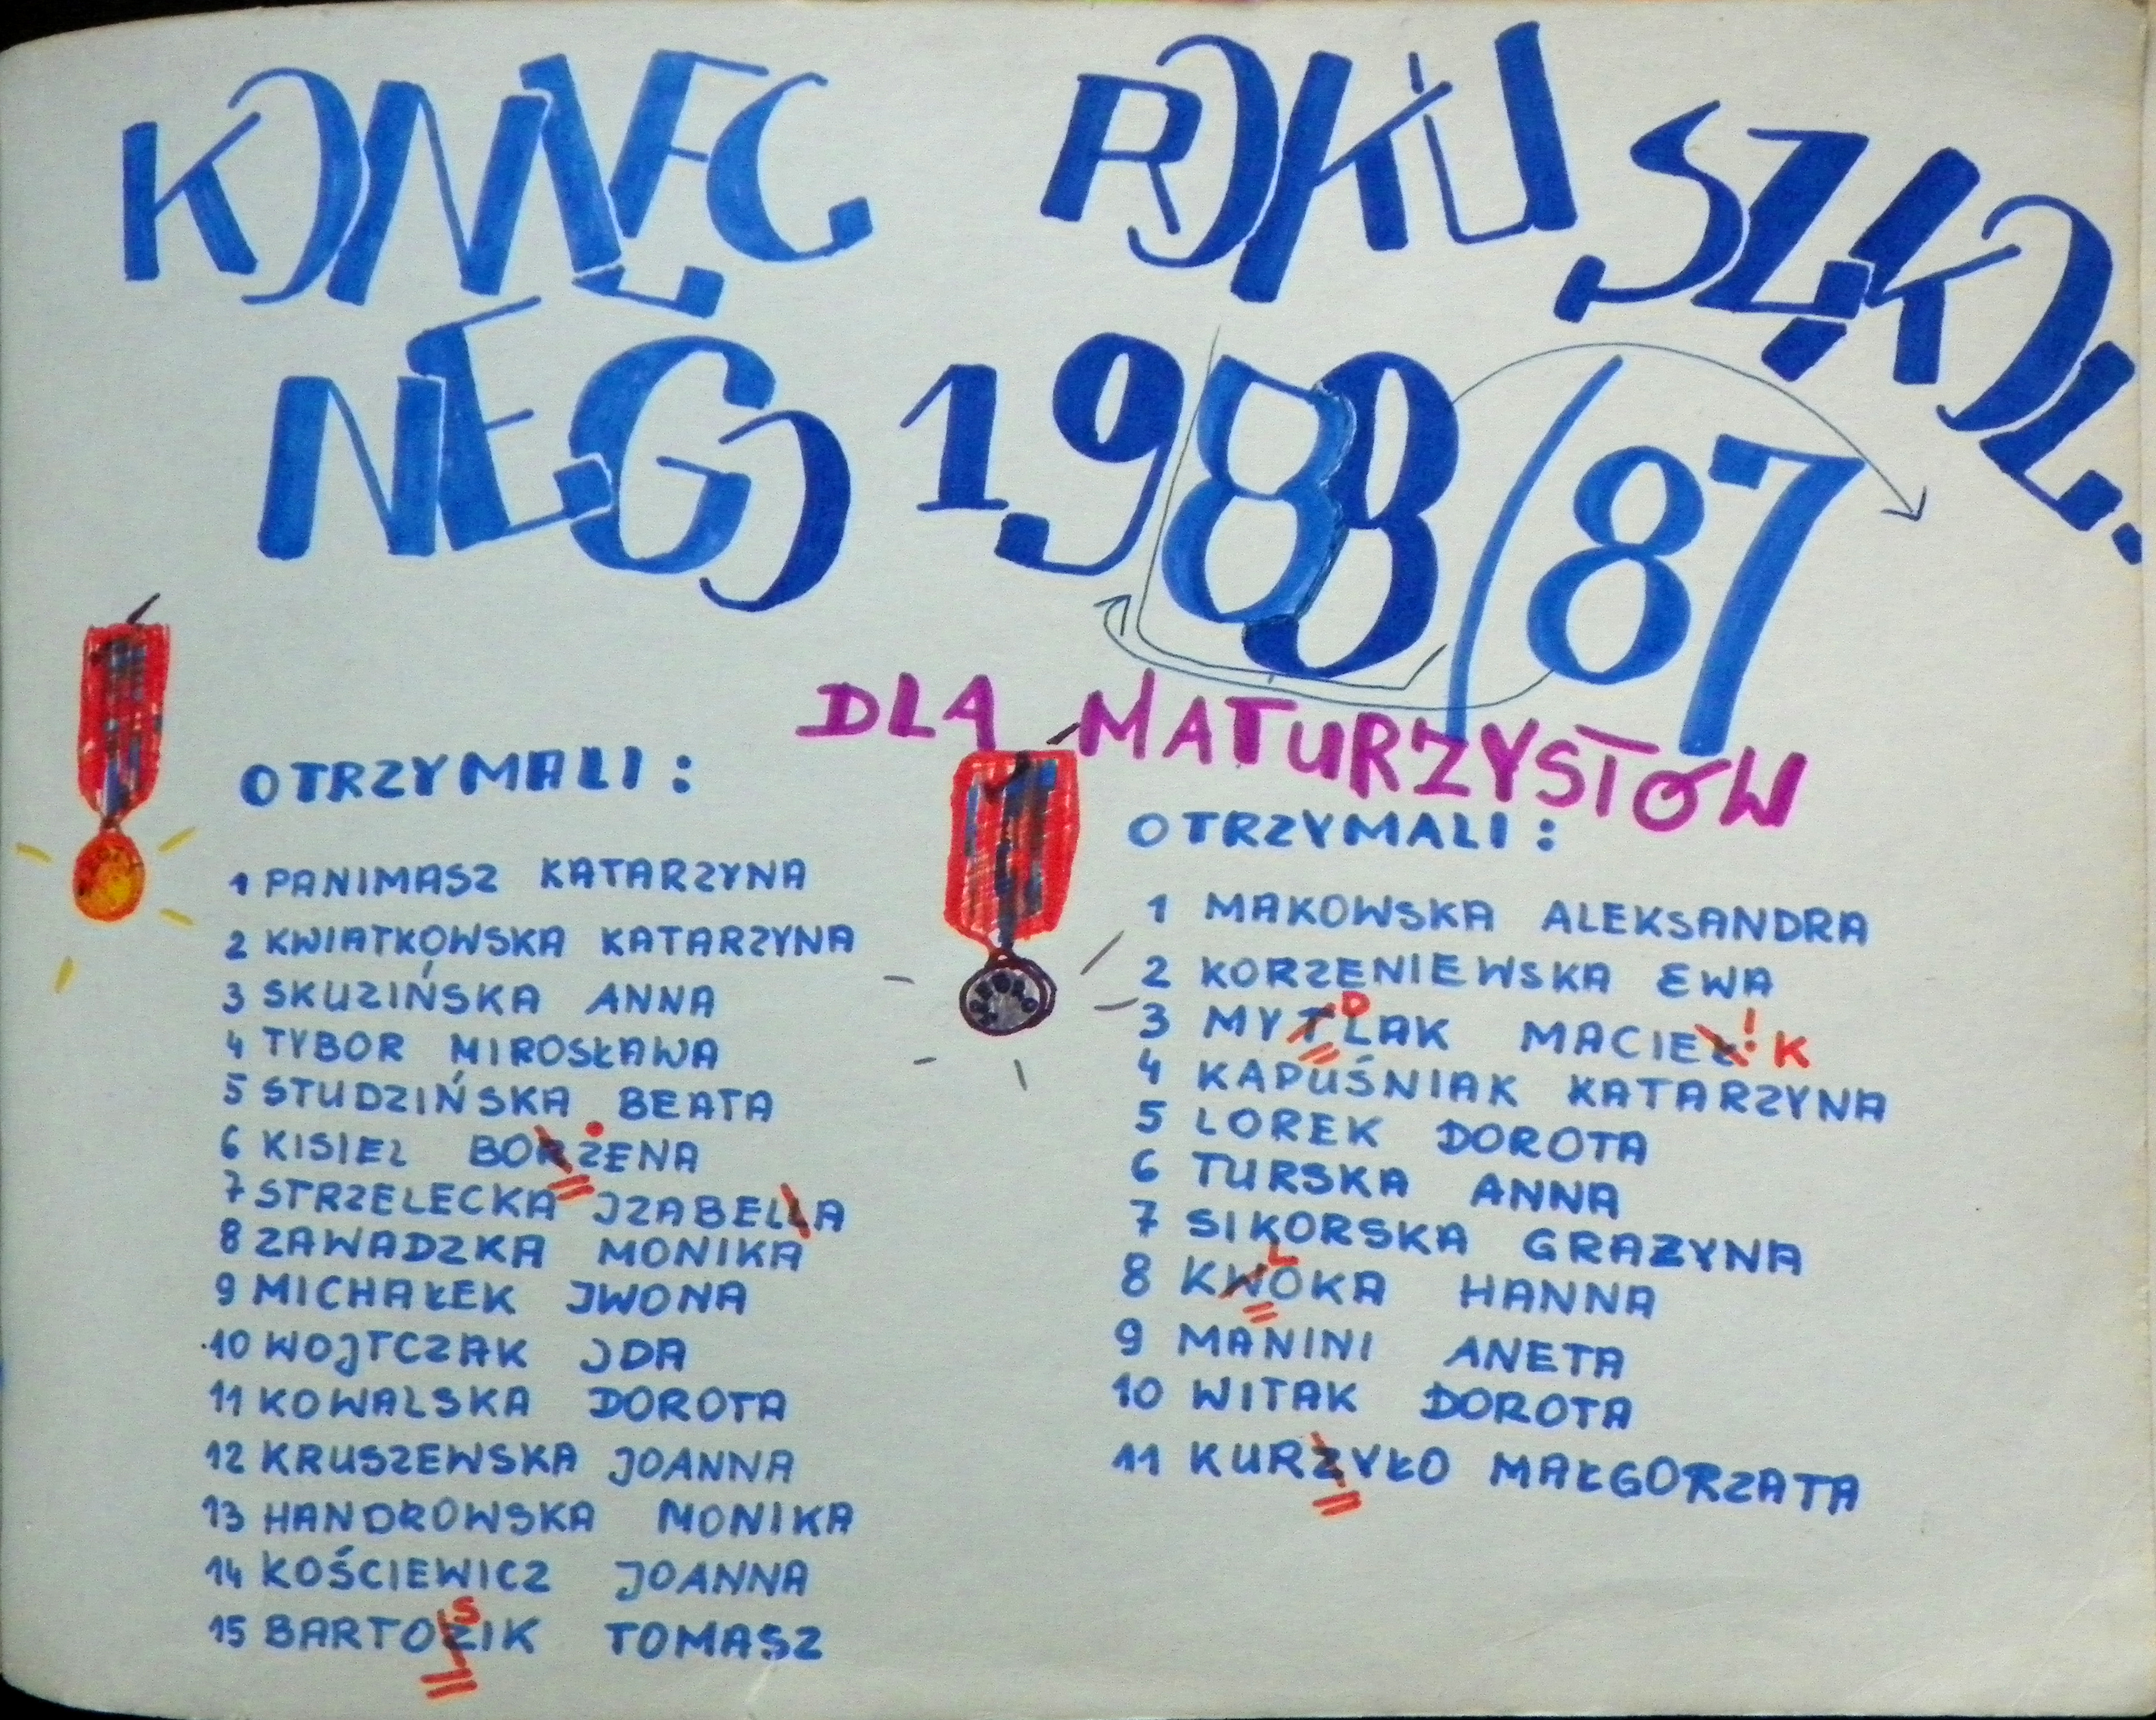 KONIEC ROKU SZKOL.
NEGO 1988/87
DLA MATURZYSTÓW
OTRZYMALI:
1 PANIMASZ KATARZYNA
2 KWIATKOWSKA KATARZYNA
3 SKUZIŃSKA ANNA
4 TYBOR MIROSŁAWA
5 STUDZIŃSKA BEATA
6 KISIEL BORŻENA
7 STRZELECKA IZABELLA
8 ZAWADZKA MONIKA
9 MICHAŁEK IWONA
10 WOJTCZAK IDA
11 KOWALSKA DOROTA
12 KRUSZEWSKA JOANNA
13 HANDROWSKA MONIKA
14 KOŚCIEWICZ JOANNA
S
15 BARTOZIK TOMASZ
OTRZYMALI:
1 MAKOWSKA ALEKSANDRA
2 KORZENIEWSKA EWA
D
3 MYTLAK MACIEŁ! K
4 KAPUŚNIAK KATARZYNA
5 LOREK DOROTA
6 TURSKA ANNA
7 SIKORSKA GRAZYNA
L
8 KWOKA HANNA
9 MANINI ANETA
10 WITAK DOROTA
11 KURZYŁO MAŁGORZATA